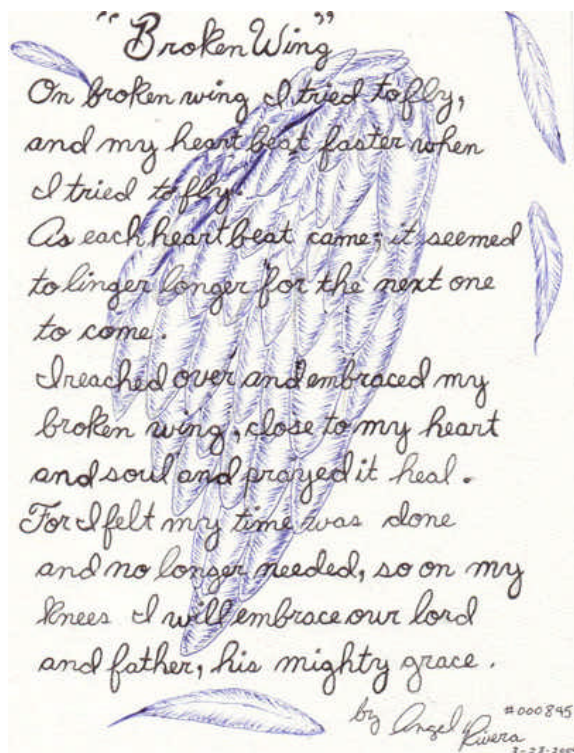 "Broken Wing"
On broken wing I tried to fly,
and my heart beat faster when
I tried to fly.
As each heart beat came; it seemed
to linger longer for the next one
to come.
I reached over, and embraced my
broken wing, close to my heart
and soul and prayed it heal.
For I felt my time was done
and no longer needed, so on my
knees I will embrace our lord
and father, his mighty grace.
by Angel Rivera
#000845